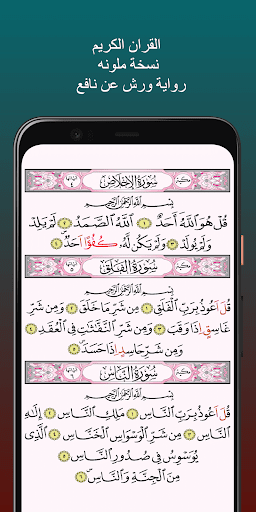 القران الكريم
نسخة ملونه
رواية ورش عن نافع
مكية سُورَةُ الإِخْلَاصِ ٤
بِسْمِ اِللَّهِ اِلرَّحْمَٰنِ اِلرَّحِيمِ
قُلْ هُوَ اَللَّهُ أَحَدٌ ١ اَللَّهُ اُلصَّمَدُ ٢ لَمْ يَلِدْ
وَلَمْ يُولَدْ ٣ وَلَمْ يَكُن لَّهُۥ كُفُؤًا اَحَدٌ ٤
مكية سُورَةُ الْفَلَقِ ٥
بِسْمِ اِللَّهِ اِلرَّحْمَٰنِ اِلرَّحِيمِ
قُلَ اَعُوذُ بِرَبِّ اِلْفَلَقِ ١ مِن شَرِّ مَا خَلَقَ ٢ وَمِن شَرِّ
غَاسِقٍ اِذَا وَقَبَ ٣ وَمِن شَرِّ اِلنَّفَّٰثَٰتِ فِے اِلْعُقَدِ ٤
وَمِن شَرِّ حَاسِدٍ اِذَا حَسَدَ ٥
مكية سُورَةُ النَّاسِ ٦
بِسْمِ اِللَّهِ اِلرَّحْمَٰنِ اِلرَّحِيمِ
قُلَ اَعُوذُ بِرَبِّ اِلنَّاسِ ١ مَلِكِ اِلنَّاسِ ٢ إِلَٰهِ
اِلنَّاسِ ٣ مِن شَرِّ اِلْوَسْوَاسِ اِلْخَنَّاسِ ٤ اِلَّذِے
يُوَسْوِسُ فِے صُدُورِ اِلنَّاسِ ٥
مِنَ اَلْجِنَّةِ وَالنَّاسِ ٦